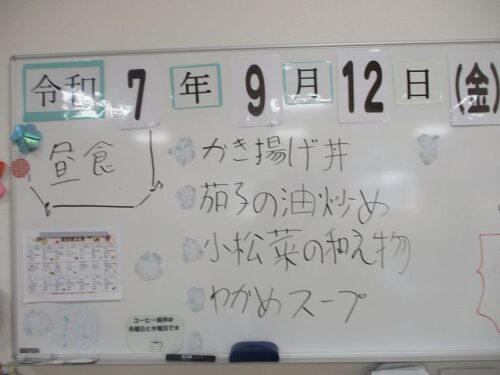 令和7年9月12日(金)
昼食
かき揚げ丼
茄子の油炒め
小松菜の和え物
わかめスープ
コーヒー提供は
月曜日と木曜日です